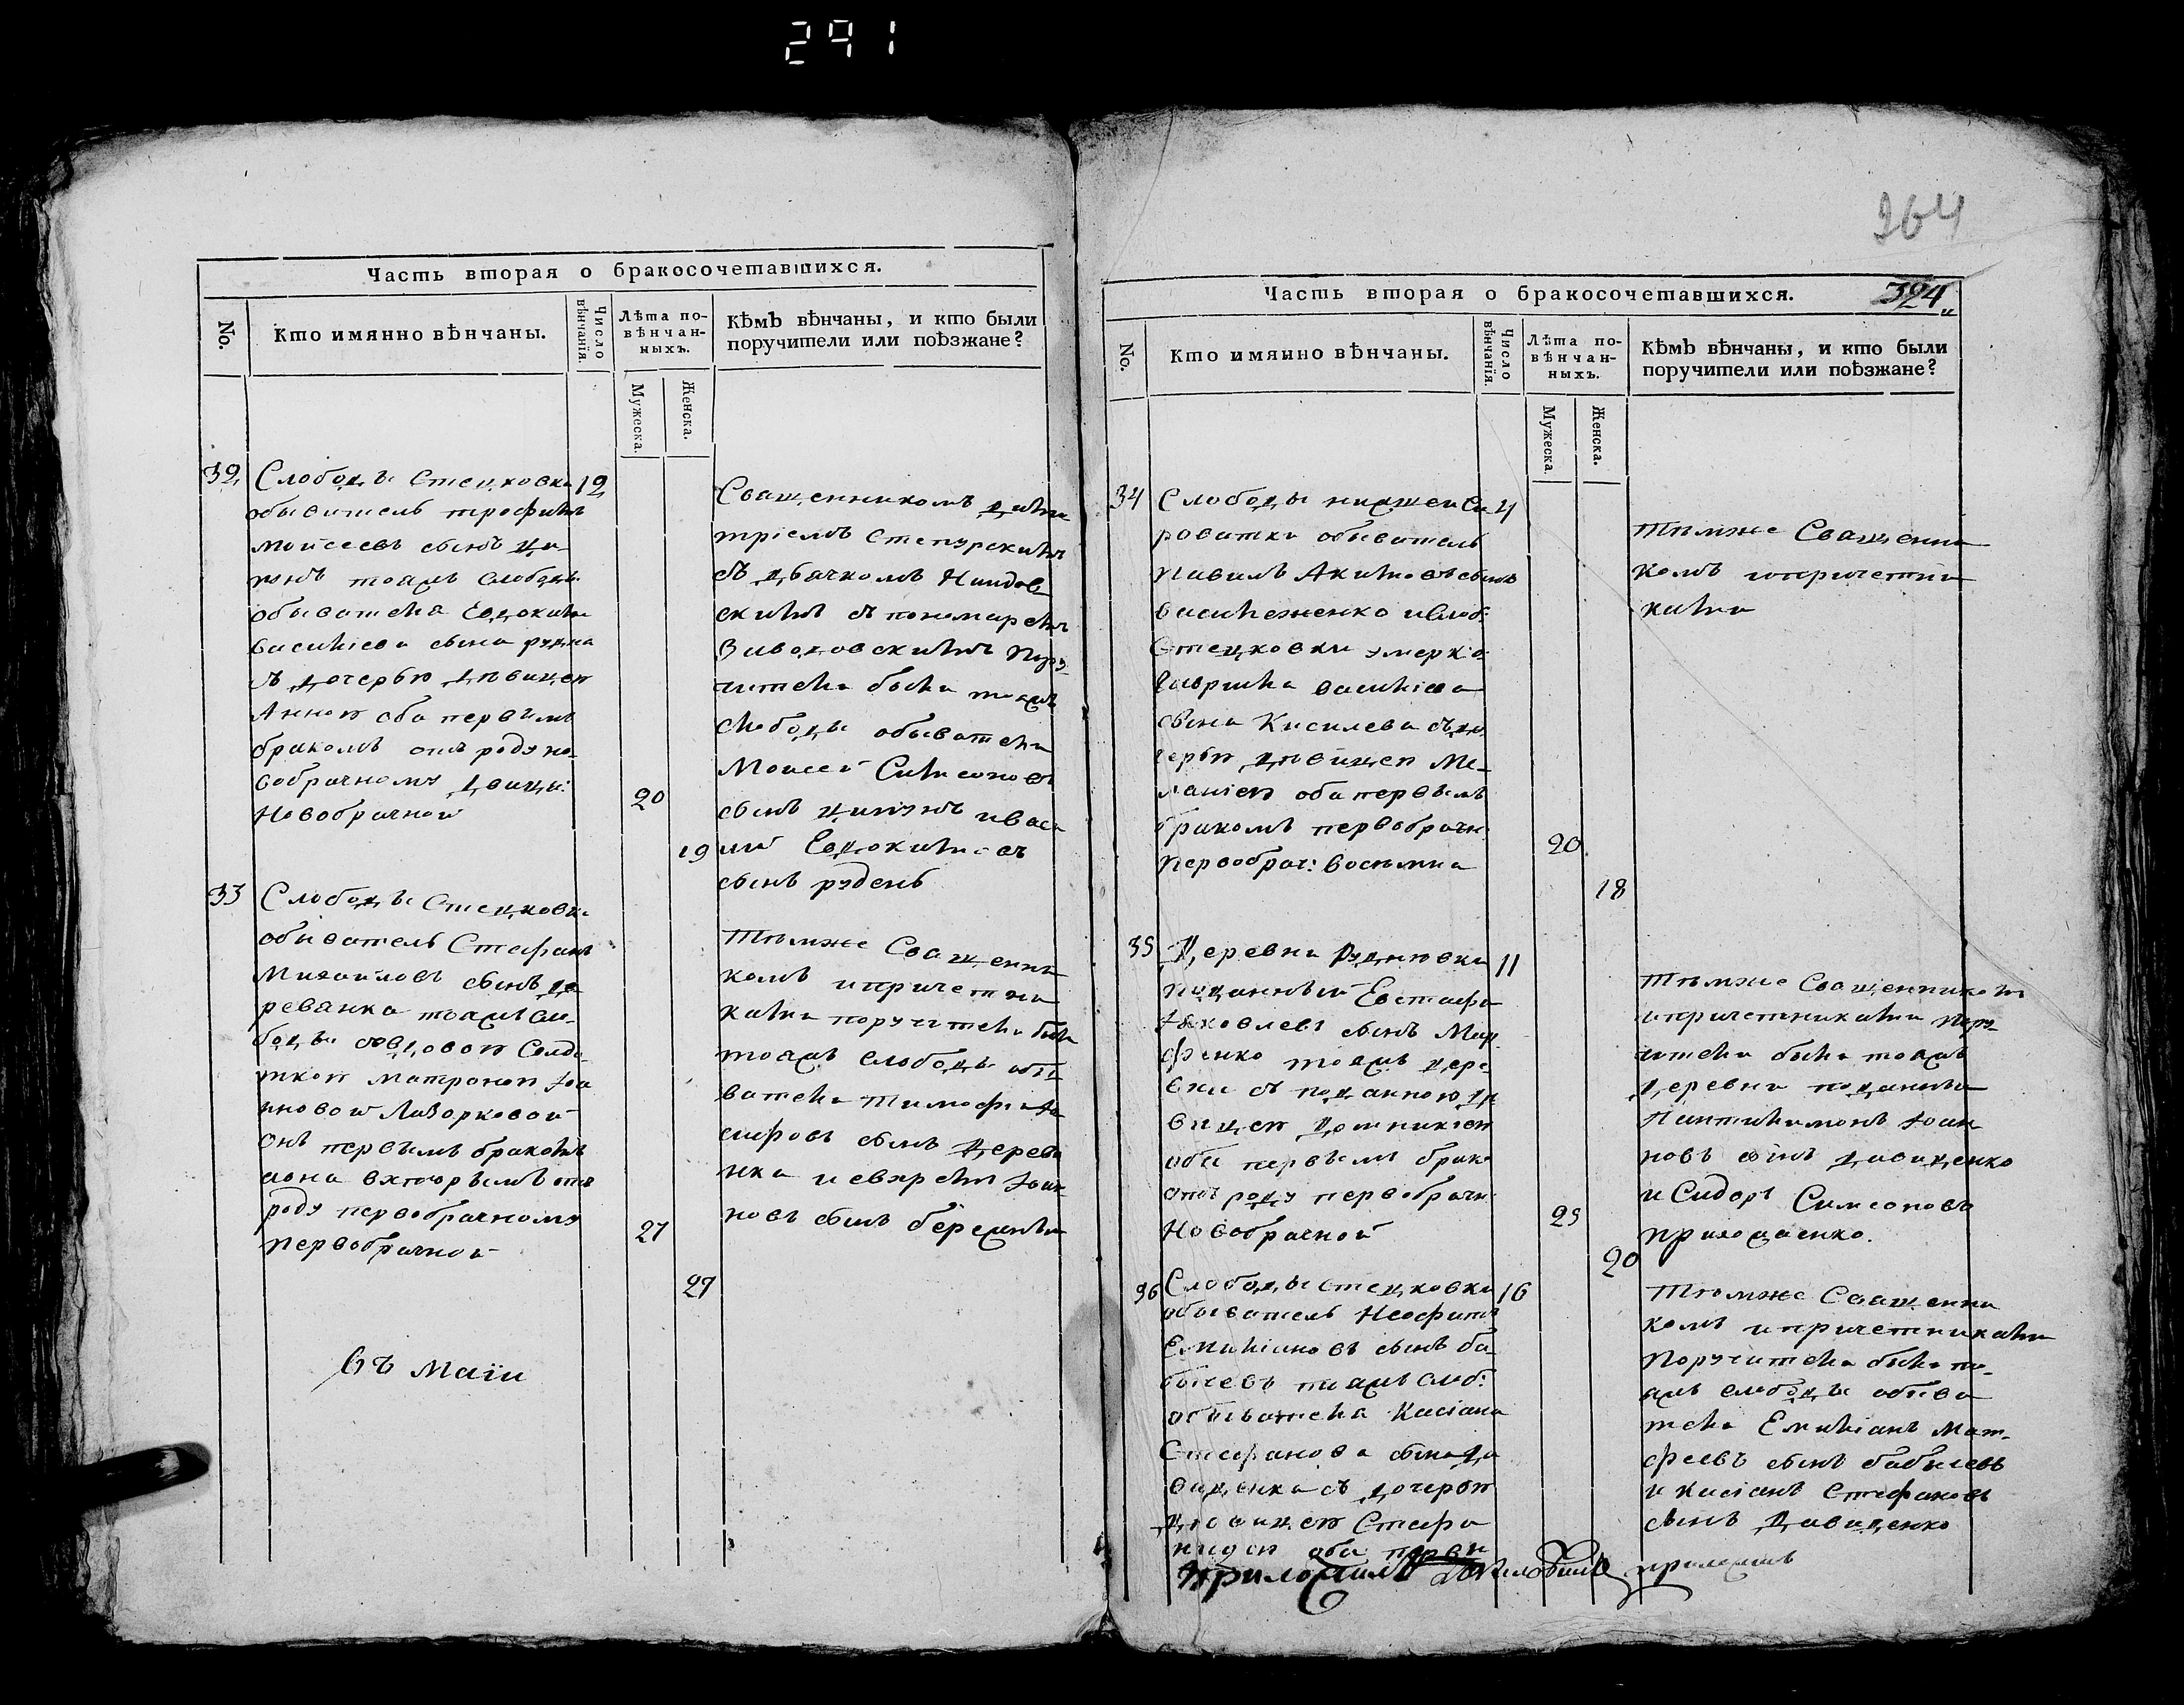 291
Часть вторая о бракосочетавшихся.
No.
Кто имянно вѣнчаны.
Число вѣнчанія.
Лѣта по-
вѣнчан-
ныхъ.
Мужеска.
Женска.
Кѣмъ вѣнчаны, и кто были
поручители или поѣзжане?
32
Слободы Стецковки 12
обыватель трофимъ
Моисеевъ сынъ
тояжъ слободы
обывателя Евдокима
василіева сына рудня
съ дочерью девицею
Анною оба первымъ
бракомъ отъ роду но-
вобрачному двицы
Новобрачной
20
19
Священникомъ дими
тріемъ Степурскимъ
съ дьячкомъ
скимъ съ пономаремъ
Заводовскимъ пору
чители были тояжъ
слободы обыватели
Моисей Симеоновъ
сынъ и васи
лий Евдокимовъ
сынъ рудень
33
Слободы Стецковки
обиватель Стефанъ
Михайловъ сынъ де
ревянка тояжъ сло-
боды вдовою Солда
ткою матроною Іоа
нновой Лазорковой
онъ первымъ бракомъ
аона вхторымъ отъ
роду первобрачному
первобрачной
27
27
Тѣмже Священни
комъ ипричетни
ками поручители были
тояжъ слободы оби
ватели тимофей
сифовъ сынъ Дерева
нка и Іоан
новъ сынъ
Въ Маіи
364
Часть вторая о бракосочетавшихся.
324
No.
Кто имянно вѣнчаны.
Число вѣнчанія.
Лѣта по-
вѣнчан-
ныхъ.
Мужеска.
Женска.
Кѣмъ вѣнчаны, и кто были
поручители или поѣзжане?
34
Слободы нижней Си 4
роватки обыватель
Павилъ Акимовъ сынъ
василеженко ислоб:
Стецковки умерко
Гаврила василіева
сына Кисилева съ до
черью двицею Ме-
ланіею оба первымъ
бракомъ первобрачн
первобрач:
20
18
Тѣмже Священни
комъ ипричетни
ками
35
Деревни Рудневки 11
поданный Евстафи
Яковлевъ сынъ Мар
фенко тояжъ дере
вни съ поданною дѣ
вицею Домникіею
оба первымъ брако
отъ роду первобрачн
Новобрачной
25
20
Тѣмже Священникомъ
ипричетниками пору
чители были тояжъ
деревни поданныи
Пантилимонъ Іоан
новъ сынъ давиденко
и Сидоръ Симеоновъ
36
Слободы Стецковки 16
обыватель Неофитъ
Емиліановъ сынъ ба
бичевъ тояжъ слоб:
обывателя Касіана
Стефанова сына да
виденка съ дочерью
двицею Стефа
нидою оба перви
Тѣмже Священни
комъ ипричетниками
Поручители были то
яжъ слободы обыва
тели Емиліанъ Мат-
феевъ сынъ бабичевъ
и Касіанъ Стефановъ
сынъ Давиденко